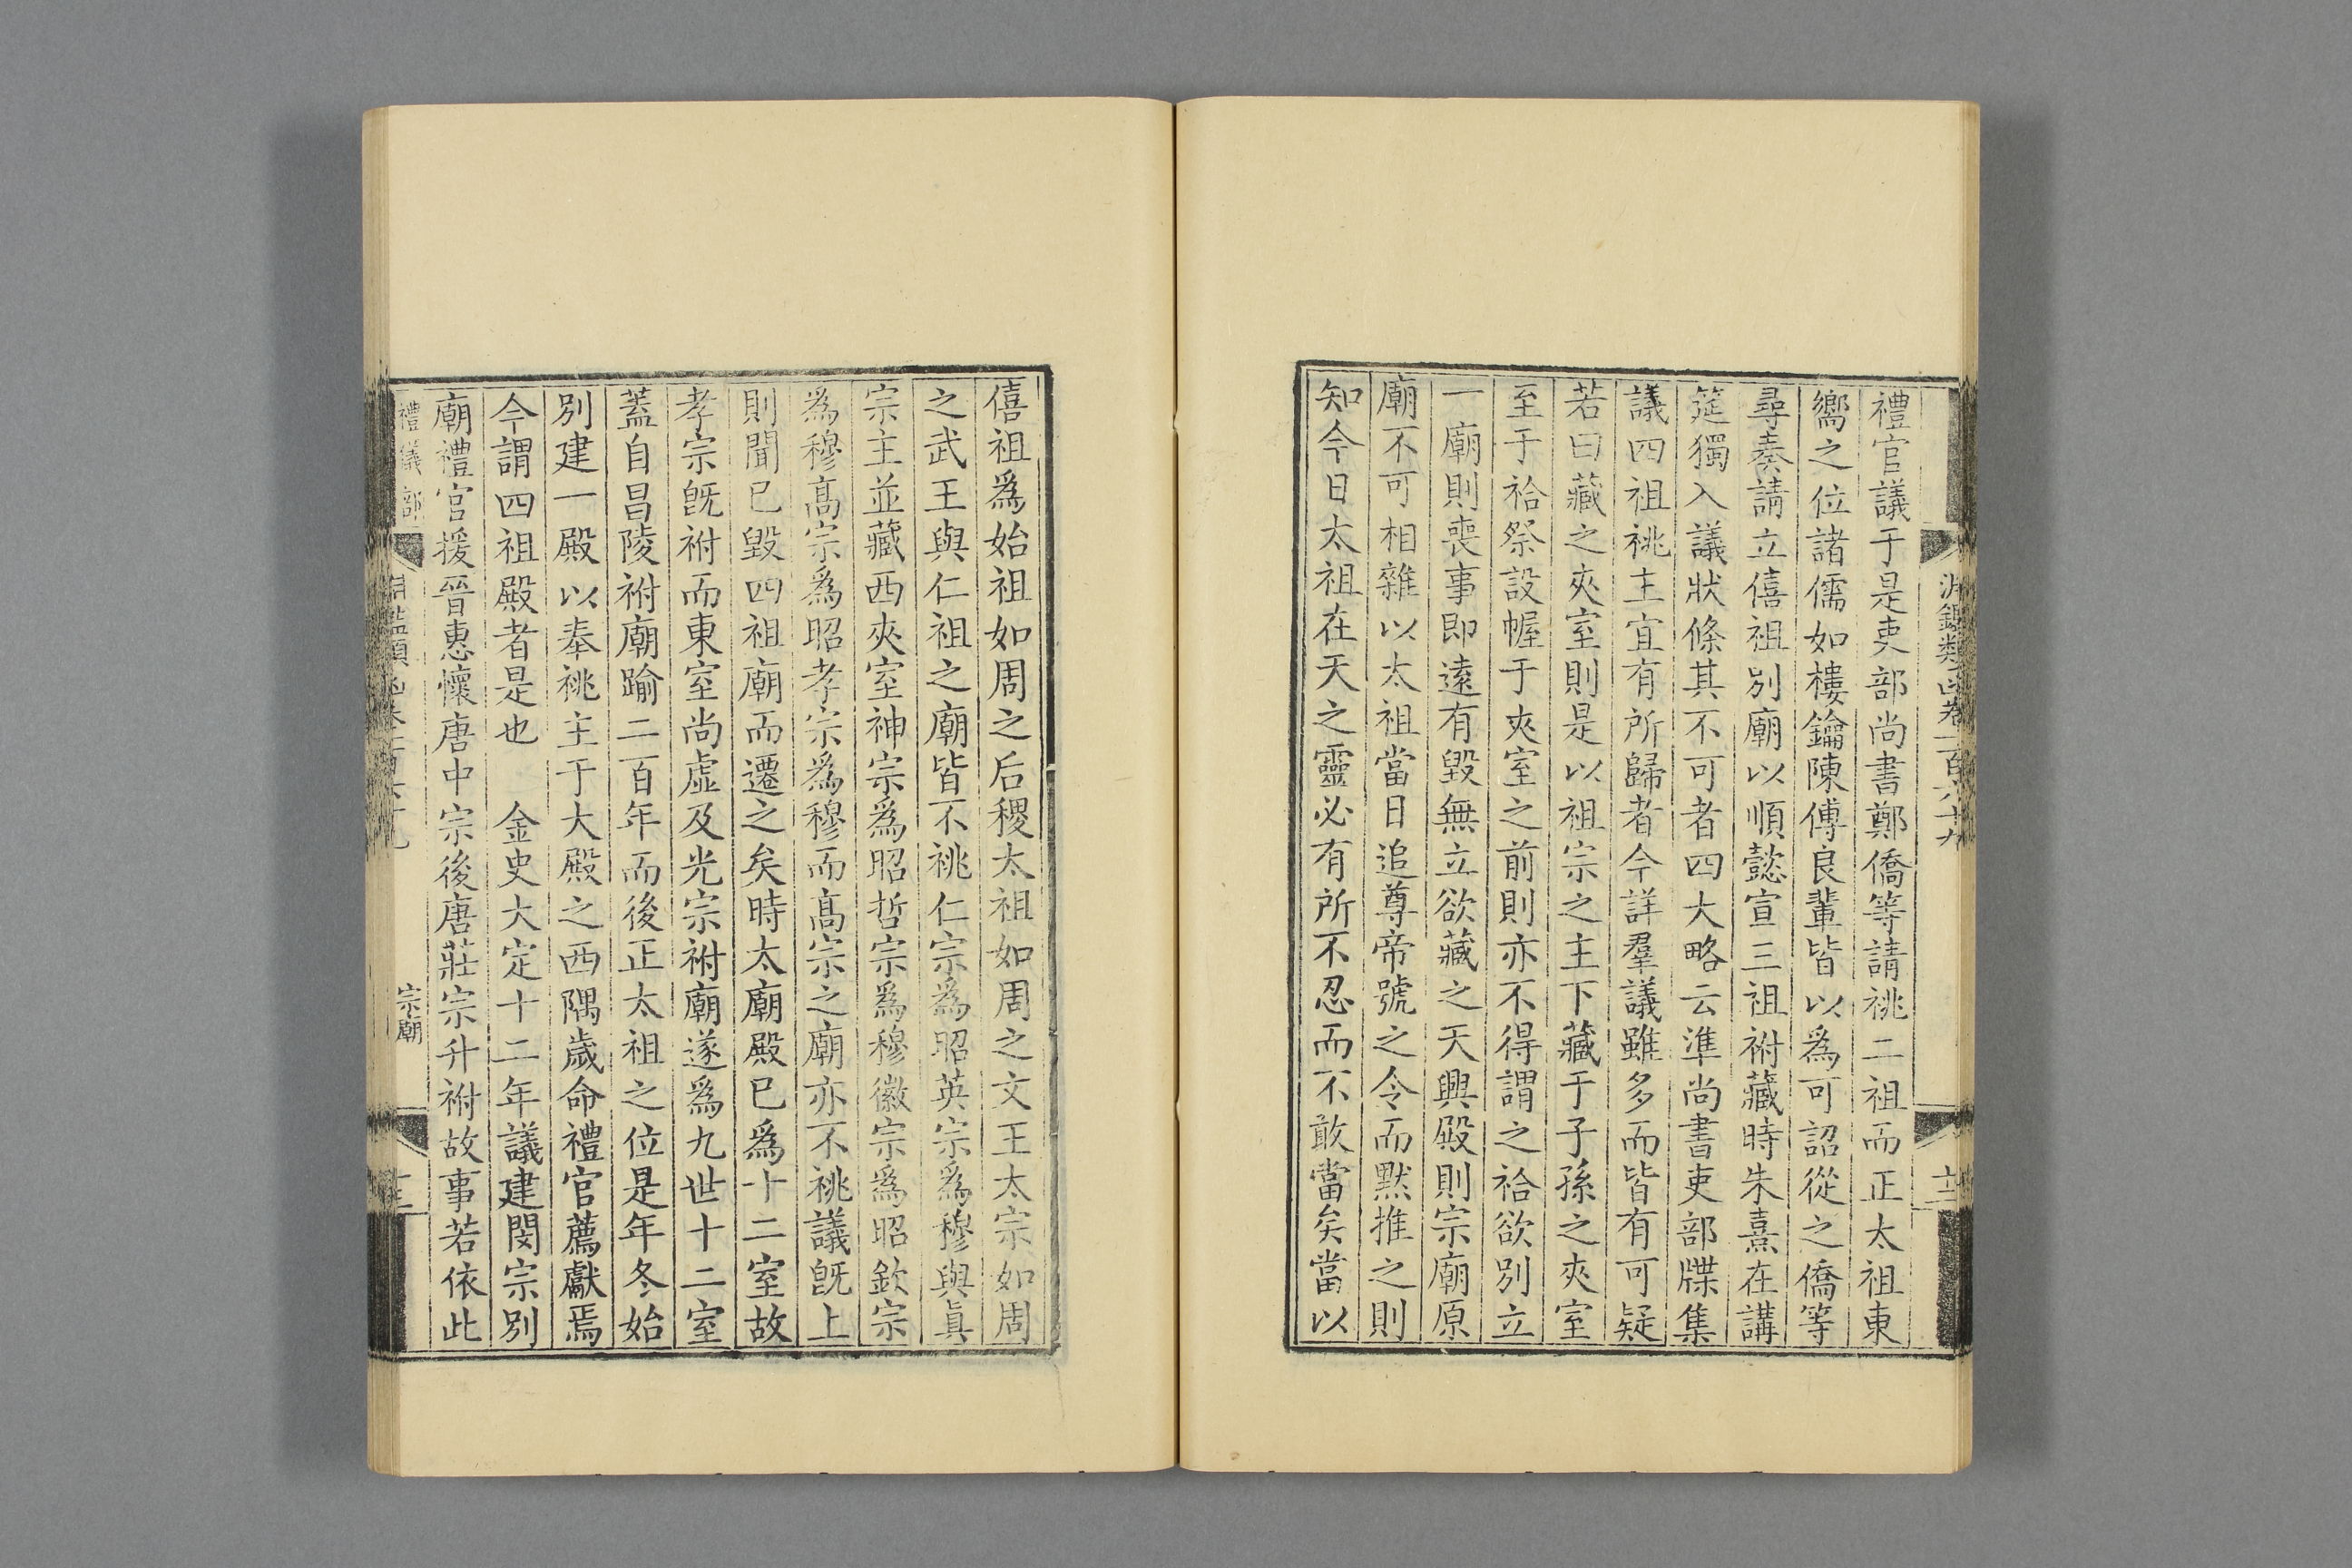 淵鑑類函卷一百六十九
十二
禮官議于是吏部尚書鄭僑等請祧二祖而正太祖東
嚮之位諸儒如樓鑰陳傅良輩皆以爲可詔從之僑等
尋奏請立僖祖別廟以順懿宣三祖祔藏時朱熹在講
筵獨入議狀條其不可者四大略云準尚書吏部牒集
議四祖祧主宜有所歸者今詳羣議雖多而皆有可疑
若曰藏之夾室則是以祖宗之主下藏于子孫之夾室
至于祫祭設幄于夾室之前則亦不得謂之祫欲別立
一廟則喪事即遠有毀無立欲藏之天興殿則宗廟原
廟不可相雜以太祖當日追尊帝號之令而默推之則
知今日太祖在天之靈必有所不忍而不敢當矣當以
僖祖爲始祖如周之后稷太祖如周之文王太宗如周
之武王與仁祖之廟皆不祧仁宗爲昭英宗爲穆與眞
宗主並藏西夾室神宗爲昭哲宗爲穆徽宗爲昭欽宗
爲穆髙宗爲昭孝宗爲穆而髙宗之廟亦不祧議旣上
則聞已毀四祖廟而遷之矣時太廟殿已爲十二室故
孝宗旣祔而東室尚虛及光宗祔廟遂爲九世十二室
蓋自昌陵祔廟踰二百年而後正太祖之位是年冬始
別建一殿以奉祧主于大殿之西隅歲命禮官薦獻焉
今謂四祖殿者是也　金史大定十二年議建閔宗別
廟禮官援晉惠懷唐中宗後唐莊宗升祔故事若依此
禮儀部
淵鑑類函卷一百六十九
宗廟